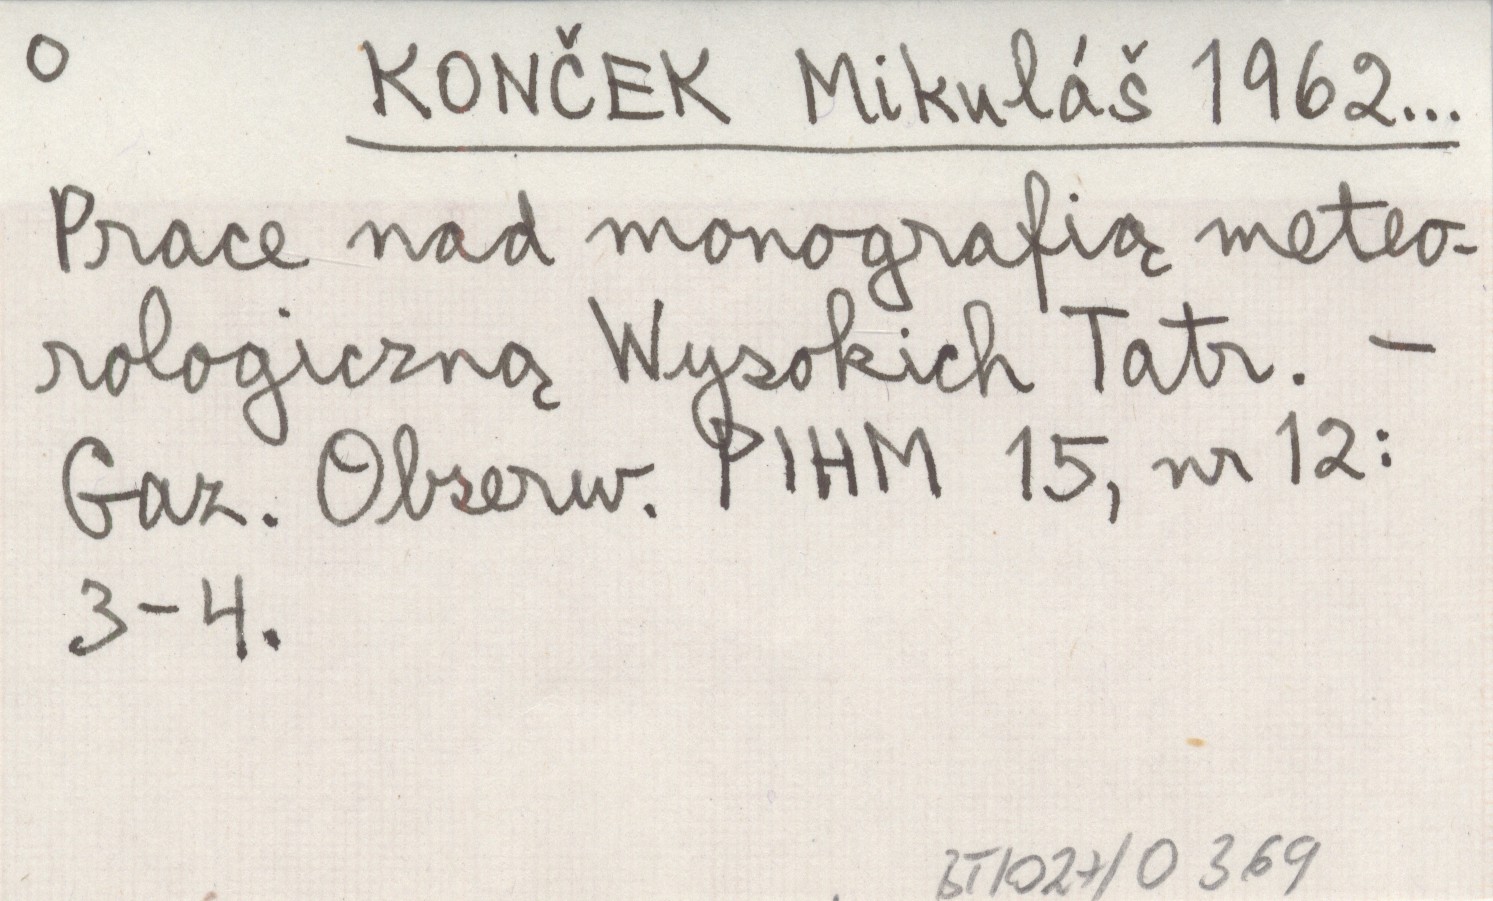 O KONČEK Mikuláš 1962...
Prace nad monografią meteo-
rologiczną Wysokich Tatr. –
Gaz. Obserw. PIHM 15, nr 12:
3-4.
O 369